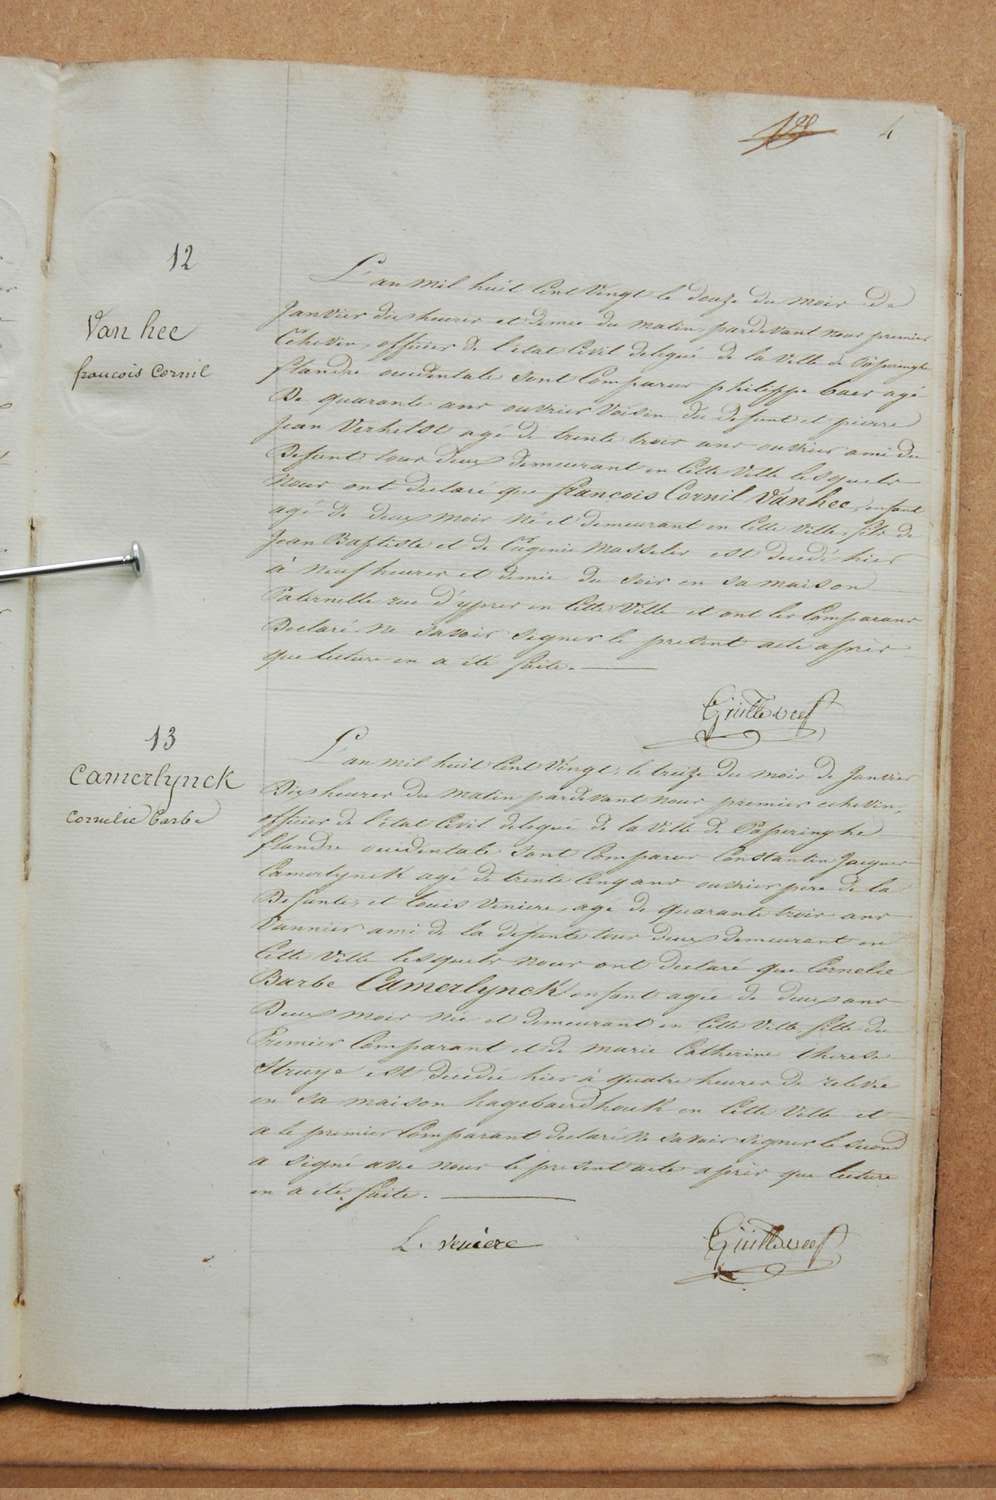 4
12
Van hee
francois Cornil
L'an mil huit Cent Vingt le douze du mois de
Janvier dix heures et demie du matin pardevant nous premier
Echevin, officier de l'état Civil delegué de la Ville de Poperinghe
flandre occidentale sont Comparus philippe Caes agé
De quarante ans ouvrier Voisin du defunt et pierre
Jean Verhelst agé de trente trois ans ouvrier ami du
Defunt tous deux demeurant en Cette Ville lesquels
Nous ont declaré que francois Cornil Vanhee, enfant
agé de deux mois né et demeurant en Cette Ville, fils de
Jean Baptiste et de Eugenie Masselis est decedé hier
à neuf heures et demie du soir en sa maison
Paternelle rue d'ypres en Cette Ville et ont les Comparans
Declaré Ne Savoir Signer le present acte après
que lecture en a été faite.
13
Camerlynck
Cornelie Barbe
L'an mil huit Cent Vingt, le treize du mois de Janvier
Dix heures du matin pardevant nous premier echevin,
officier de l'état Civil delegué de la Ville de Poperinghe
flandre occidentale sont Comparus Constantin Jacques
Camerlynck agé de trente Cinq ans ouvrier pere de la
Defunte, et Louis Veniere, agé de quarante trois ans
Vannier ami de la defunte tous deux demeurant en
Cette Ville lesquels nous ont declaré que Cornelie
Barbe Camerlynck enfant agée de deux ans
Deux mois née et demeurant en Cette Ville fille du
Premier Comparant et de marie Catherine therese
Struye est decedée hier à quatre heures de relevée
en sa maison hagebaerdhouk en Cette Ville et
a le premier Comparant declaré Ne savoir signer le second
a signé avec nous le present acte après que lecture
en a été faite.
L. Veniere